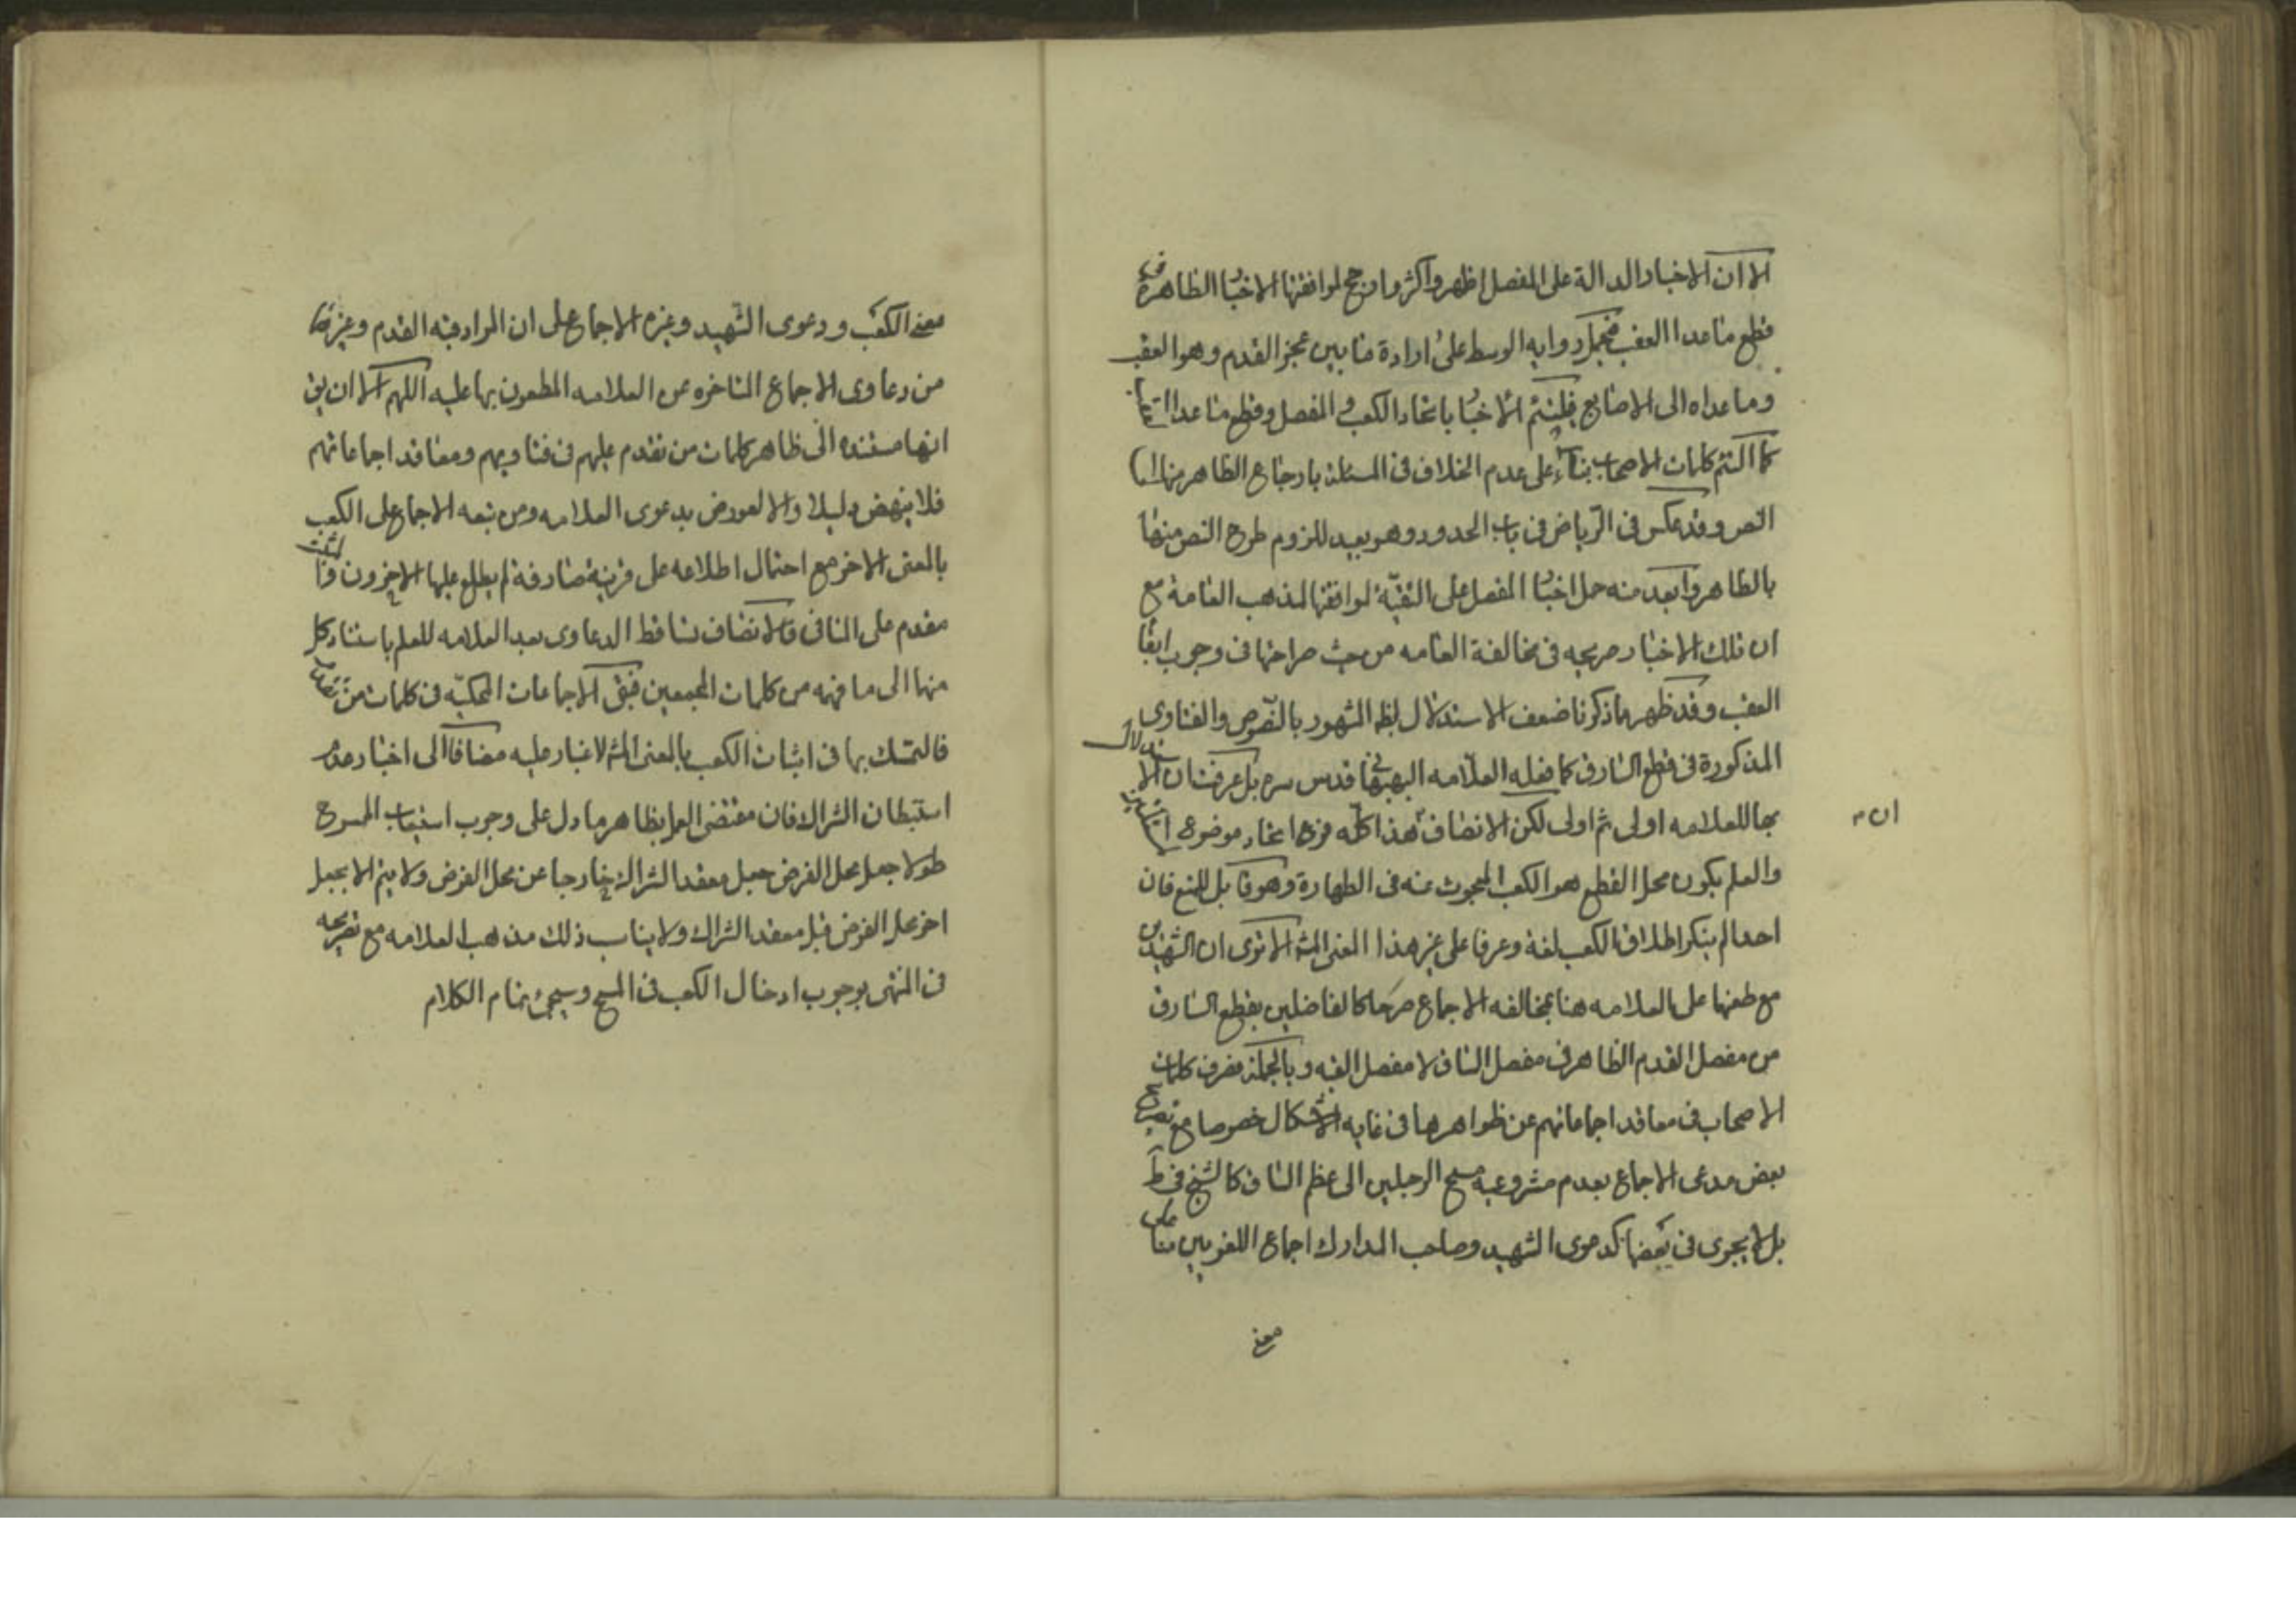 الا ان الاخبار الدالة على المفصل اظهر واكثر وارجح لموافقتها الاخبار الظاهرة في
قطع ما عدا العقب فيحمل رواية الوسط على ارادة ما بين عجز القدم وهو العقب
وما عداه الى الاصابع فيلتئم الاخبار باتحاد الكعب و المفصل وقطع ما عدا
كما التئم كلمات الاصحاب بناء على عدم الخلاف في المسئلة بارجاع الظاهر منها الى
النص وقد عكس في الرياض في باب الحدود وهو بعيد للزوم طرح النص منها
بالظاهر وابعد منه حمل اخبار المفصل على التقية لموافقتها لمذهب العامة مع
ان تلك الاخبار صريحه في مخالفة العامه من حيث صراحتها في وجوب ابقا
العقب وقد ظهر مما ذكرنا ضعف الاستدلال لظ المشهور بالنصوص والفتاوى
المذكورة في قطع السارق كما فعله العلامه البهبهاني قدس سره بل عرفت ان الاستدلال
بها للعلامه اولى ثم اولى لكن الانصاف ان هذا كله فرع اتحاد موضوع
والعلم بكون محل القطع هو الكعب المبحوث عنه في الطهارة وهو قابل للمنع فان
احدا لم ينكر اطلاق الكعب لغة وعرفا على غير هذا المعنى المش الا ترى ان الشهيدين
مع طعنهما على العلامه هنا بمخالفه الاجماع صرحا كالفاضلين بقطع السارق
من مفصل القدم الظاهر في مفصل الساق لا مفصل القبه وبالجملة فصرف كلمات
الاصحاب في معاقد اجماعاتهم عن ظواهرها في غايه الاشكال خصوصا مع تصريح
بعض مدعى الاجماع بعدم مشروعيه مسح الرجلين الى عظم الساق كالشيخ في ط
بل لا يجرى في بعضها كدعوى الشهيد وصاحب المدارك اجماع اللغويين منا على
معنى
معنى الكعب ودعوى الشهيد وغيره الاجماع على ان المراد قبه القدم وغيرها
من دعاوى الاجماع المتاخره عن العلامه المطعون بها عليه اللهم الا ان يق
انها مستنده الى ظاهر كلمات من تقدم عليهم في فتاويهم ومعاقد اجماعاتهم
فلا ينهض دليلا والا لعورض بدعوى العلامه ومن تبعه الاجماع على الكعب
بالمعنى الاخر مع احتمال اطلاعه على قرينة صارفة لم يطلع عليها الاخرون والمثبت
مقدم على النافي فالانصاف تساقط الدعاوى بعد العلامه للعلم باستناد كل
منها الى ما فهمه من كلمات المجمعين فيبقى الاجماعات المحكيه في كلمات من تقدم
فالتمسك بها في اثبات الكعب بالمعنى المش لا غبار عليه مضافا الى اخبار عدم
استبطان الشراك فان مقتضى العمل بظاهر ما دل على وجوب استيعاب الممسوح
طولا جعل محل الفرض جعل معقد الشراك خارجا عن محل الفرض ولا يتم الا بجعل
اخر محل الفرض قبل معقد الشراك ولا يناسب ذلك مذهب العلامه مع تصريحه
في المنتهى بوجوب ادخال الكعب في المسح وسيجئ تمام الكلام